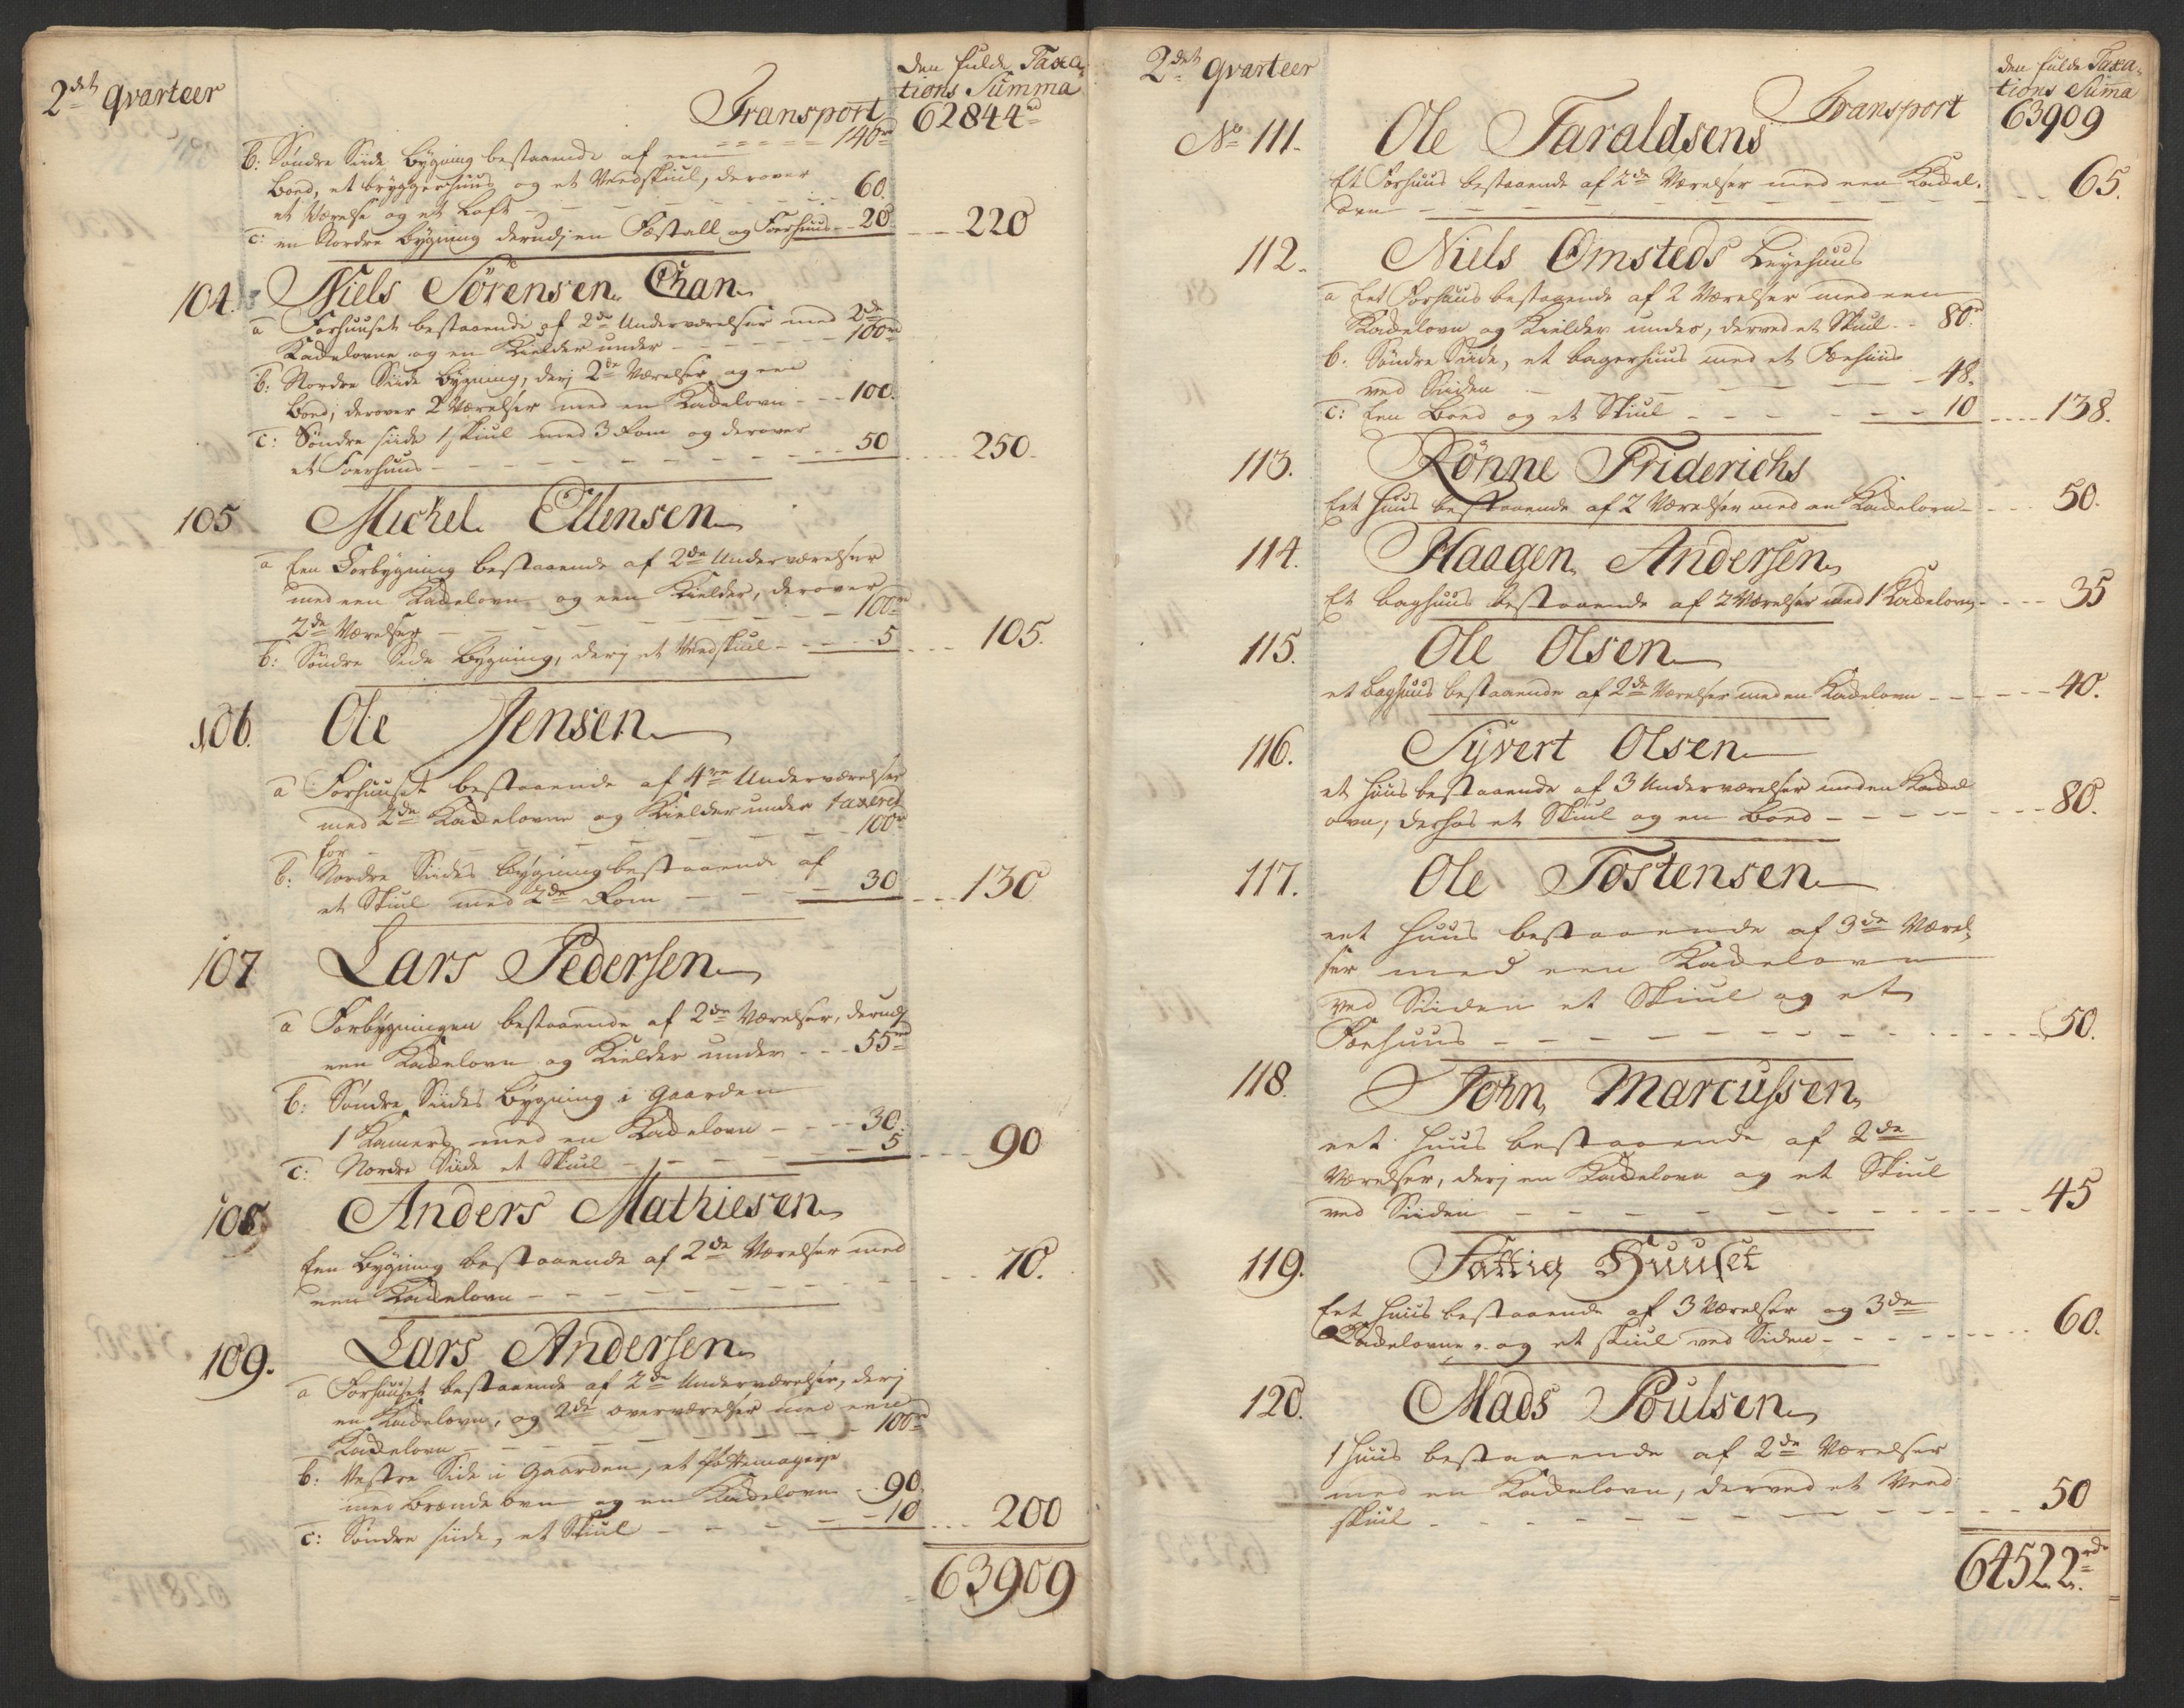 2det Qvarteer
den fulde Taxa-
tions Summa
Transport 62844rd
140rd
b: Søndre Siide bygning bestaaende af een
Boed, et bryggerhuus og et Vedskiul, derover
et Værelse og et Loft - - - 60.
c: en Nordre bygning derudj en Fæstall og Foerhuus - 20 - - 220
104. Niels Sørensen Chan
a Forhuuset bestaaende af 2de Underværelser med 2de
Kackelovne og en Kielder under - - - 100rd
b: Nordre Siide bygning, derj 2de Værelser og een
Boed, derover 2 Værelser med en Kackelovn - - - 100.
c: Søndre siide 1 skiul med 3 Rom og derover
et Foerhuus - - - 50 - - 250.
105 Michel Ellensen
a Een Forbygning bestaaende af 2de Underværelser
med een Kackelovn og een Kielder, derover
2de Værelser - - - 100rd
b: Søndre Side bygning, derj et Vedskiul - - - 5 - - 105.
106. Ole Jensen
a Forhuuset bestaaende af 4re Underværelser
med 2de Kackelovne og Kielder under taxeret
for - - - 100rd
b: Nordre Siides bygning bestaaende af
et Skiul med 2de Rom - - - 30 - - 130.
107 Lars Pedersen
a Forbygningen bestaaende af 2de Værelser, derudj
een Kackelovn og Kielder under - - - 55rd
b: Søndre Siides bygning i Gaarden
1 Kamers med en Kackelovn - - - 30.
c: Nordre Siide et Skiul - - - 5 - - 90
108 Anders Mathiesen
Een bygning bestaaende af 2de Værelser med
een Kackelovn - - - 70.
109. Lars Andersen
a Forhuuset bestaaende af 2de Underværelser, derj
en Kackelovn, og 2de overværelser med een
Kackelovn - - - 100rd
b: Vestre Side i Gaarden, et pottemagerje
med brænde ovn og en Kackelovn - - 90.
c: Søndre siide, et Skiul - - - 10 - - 200
63909
2det Qvarteer
den fulde Taxa-
tions Summa
Transport 63909
No 111. Ole Taraldsens
Et Forhuus bestaaende af 2de Værelser med een Kackel-
ovn - - - 65.
112. Niels Omsteds Leyehuus
a Eet Forhuus bestaaende af 2 Værelser med een
Kackelovn og Kielder under, derved et Skiul - - 80rd
b: Søndre Siide, et bagerhuus med et Fæehuus
ved Siiden - - - 48.
c: Een Boed og et Skiul - - - 10 - - 138.
113. Rönne Friderichs
Eet Huus bestaaende af 2 Værelser med en Kackelovn - - 50.
114. Haagen Andersen
Et baghuus bestaaende af 2 Værelser med 1 Kackelovn - - 35
115. Ole Olsen
et baghuus bestaaende af 2de Værelser med en Kackelovn - - - 40.
116. Syvert Olsen
et Huus bestaaende af 3 Underværelser med en Kackel
ovn, derhos et Skiul og en Boed - - - 80.
117. Ole Tostensen
eet Huus bestaaende af 3de Værel-
ser med een Kackelovn
ved Siiden et Skiul og et
Fæehuus - - - 50.
118. John Marcussen
eet Huus bestaaende af 2de
Værelser, derj en Kackelovn og et Skiul
ved Siiden - - - 45
119. Fattig Huuset
Eet Huus bestaaende af 3 Værelser og 3de
Kackelovne og et skiul ved Siden - - - 60.
120. Mads Poulsen
1 Huus bestaaende af 2de Værelser
med en Kackelovn, derved et Veed
skiul - - - 50
64522rdr